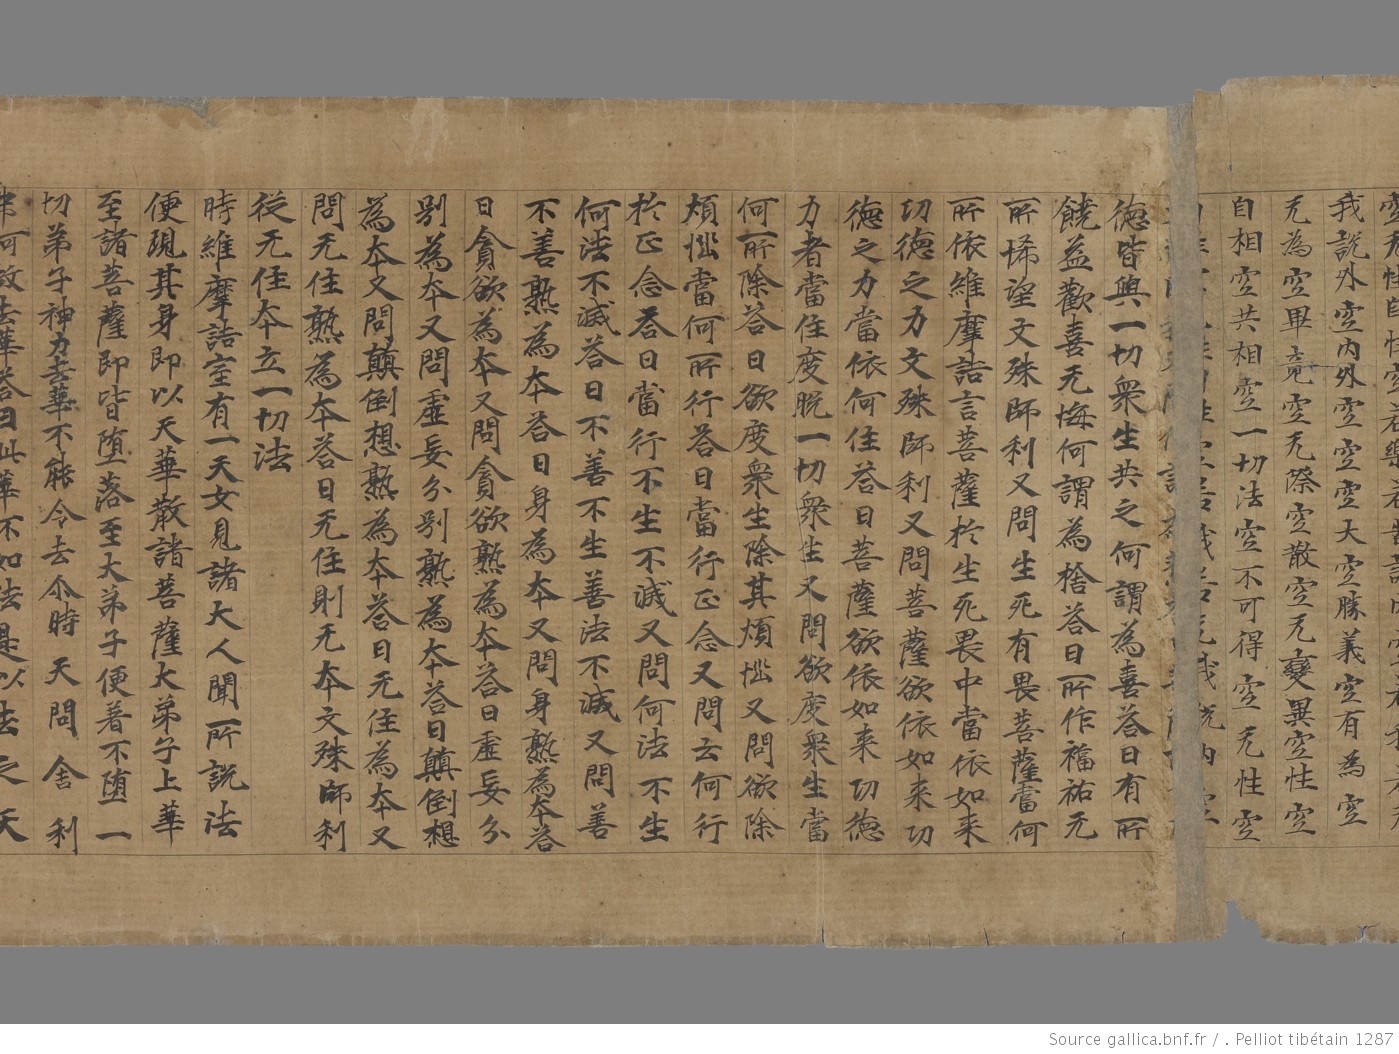 我說外空內外空空空大空勝義空有為空
无為空畢竟空无際空散空无變異空性空
自相空共相空一切法空不可得空无性空
德皆與一切衆生共之何謂為喜荅曰有所
饒益歡喜无悔何謂為捨荅曰所作福祐无
所悕望文殊師利又問生死有畏菩薩當何
所依維摩詰言菩薩於生死畏中當依如来
功德之力文殊師利又問菩薩欲依如来功
德之力當依何住荅曰菩薩欲依如来功德
力者當住度脫一切衆生又問欲度衆生當
何所除荅曰欲度衆生除其煩惱又問欲除
煩惱當何所行荅曰當行正念又問云何行
於正念荅曰當行不生不滅又問何法不生
何法不滅荅曰不善不生善法不滅又問善
不善熟為本荅曰身為本又問身熟為本荅
曰貪欲為本又問貪欲熟為本荅曰虛妄分
別為本又問虛妄分別熟為本荅曰顛倒想
為本又問顛倒想熟為本荅曰无住為本又
問无住熟為本荅曰无住則无本文殊師利
從无住本立一切法
時維摩詰室有一天女見諸大人聞所說法
便現其身即以天華散諸菩薩大弟子上華
至諸菩薩即皆堕落至大弟子便著不堕一
切弟子神力去華不能令去尒時天問舍利
弗何故去華荅曰此華不如法是以去之天